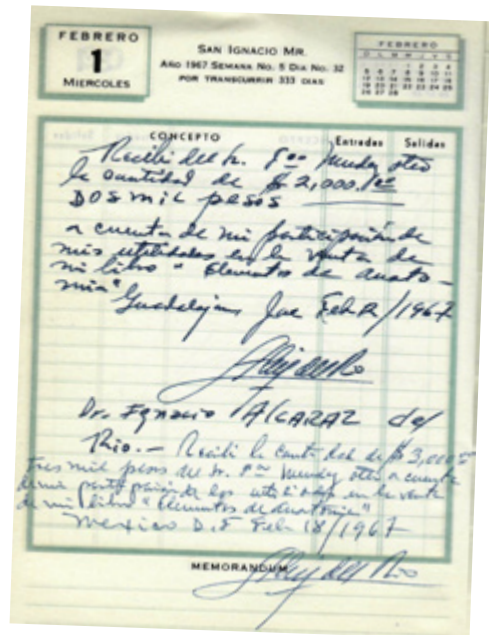 FEBRERO
1
MIERCOLES
SAN IGNACIO MR.
AÑO 1967 SEMANA No. 5 DIA No. 32
POR TRANSCURRIR 333 DIAS
FEBRERO
D L M M J V S
1 2 3 4
5 6 7 8 9 10 11
12 13 14 15 16 17 18
19 20 21 22 23 24 25
26 27 28
CONCEPTO Entradas Salidas
Recibí del Sr. Fco Mendez Oteo
la cantidad de $ 2,000.00
DOS mil pesos
a cuenta de mi participación de
mis utilidades en la venta de
mi libro "Elementos de anato-
mia"
Guadalajara Jal Feb 2/1967
Dr. Ignacio ALCARAZ del
Rio.- Recibí la cantidad de $3,000.00
tres mil pesos del Sr. Fco Mendez Oteo a cuenta
de mi participación de las utilidades en la venta
de mi libro "Elementos de Anatomia"
Mexico D.F Feb 18/1967
MEMORANDUM